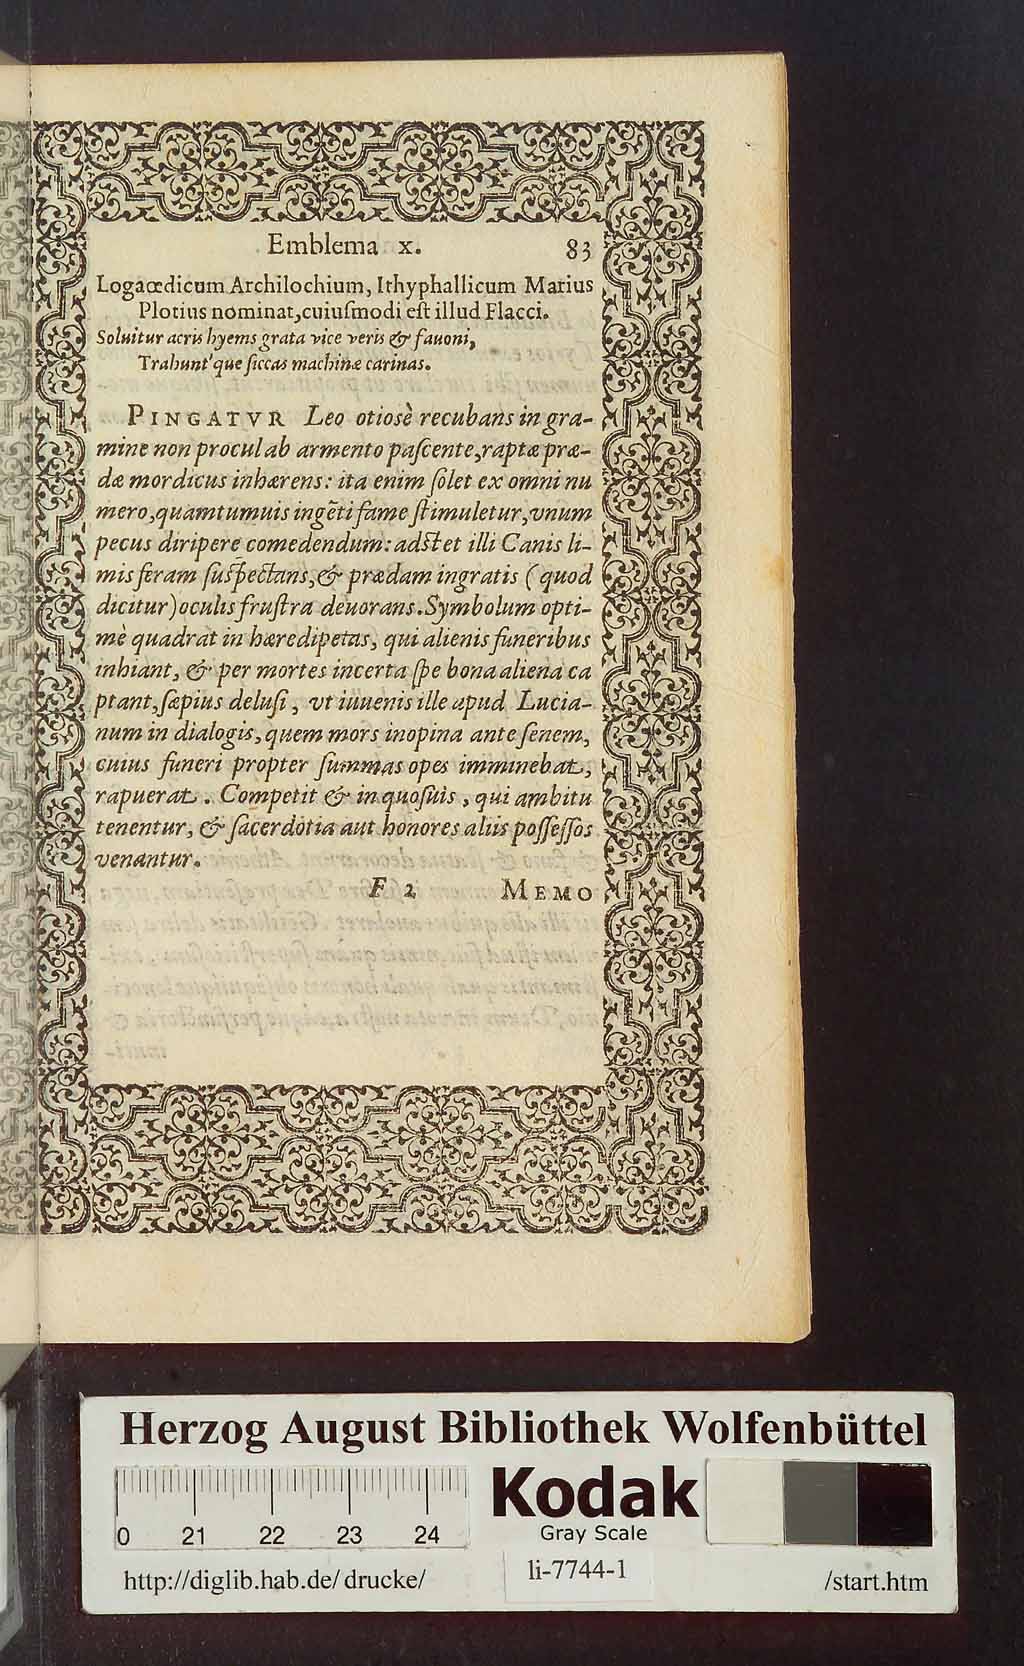 Emblema x. 83
Logaœdicum Archilochium, Ithyphallicum Marius
Plotius nominat, cuiuſmodi eſt illud Flacci.
Soluitur acris hyems grata vice veris & fauoni,
Trahunt'que ſiccas machinæ carinas.
PINGATVR Leo otiosè recubans in gra-
mine non procul ab armento paſcente, raptæ præ-
dæ mordicus inhærens: ita enim ſolet ex omni nu
mero, quamtumuis ingẽti fame ſtimuletur, vnum
pecus diripere comedendum: adſtet illi Canis li-
mis feram ſuſpectans, & prædam ingratis (quod
dicitur) oculis fruſtra deuorans. Symbolum opti-
mè quadrat in hæredipetas, qui alienis funeribus
inhiant, & per mortes incerta ſpe bona aliena ca
ptant, ſæpius deluſi, vt iuuenis ille apud Lucia-
num in dialogis, quem mors inopina ante ſenem,
cuius funeri propter ſummas opes imminebat,
rapuerat. Competit & in quoſuis, qui ambitu
tenentur, & ſacerdotia aut honores aliis poſſeſſos
venantur.
F 2 MEMO
Herzog August Bibliothek Wolfenbüttel
0 21 22 23 24
Kodak
Gray Scale
li-7744-1
http://diglib.hab.de/drucke/ /start.htm